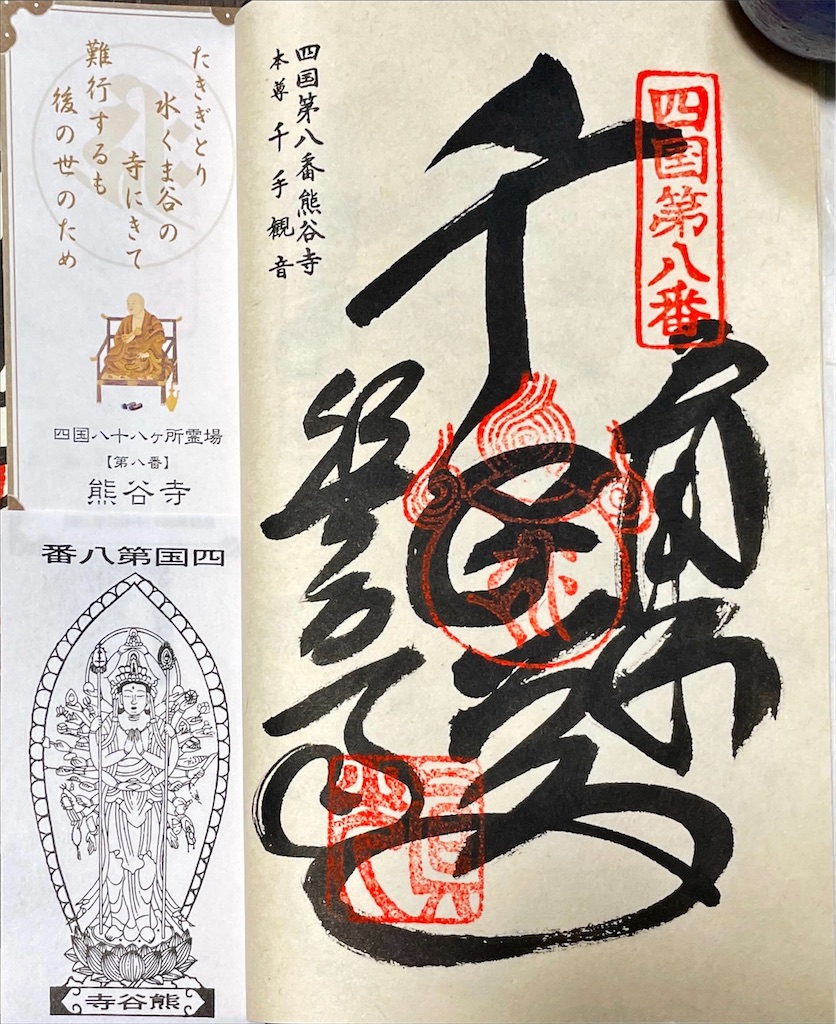 四国第八番
千
熊谷寺
四国第八番熊谷寺
本尊 千手観音
たきぎとり
水くま谷の
寺にきて
難行するも
後の世のため
四国八十八ヶ所霊場
【第八番】
熊谷寺
四国第八番
熊谷寺